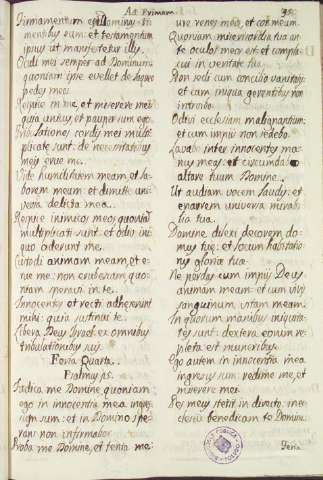 Ad Primam.
39.
Firmamentum est Dominus ti-
mentibus eum: et testamentum
ipsius ut manifestetur illis.
Oculi mei semper ad Dominum:
quoniam ipse evellet de laqueo
pedes meos.
Respice in me, et miserere mei:
quia unicus, et pauper sum ego.
Tribulationes cordis mei multi-
plicatæ sunt: de necessitatibus
meis erue me.
Vide humilitatem meam et la-
borem meum: et dimitte uni-
versa delicta mea.
Respice inimicos meos quoniam
multiplicati sunt: et odio ini-
quo oderunt me.
Custodi animam meam, et e-
rue me: non erubescam quo-
niam speravi in te.
Innocentes et recti adhæserunt
mihi: quia sustinui te.
Libera Deus Israel: ex omnibus
tribulationibus suis.
Feria Quarta.
Psalmus 25.
Judica me Domine, quoniam
ego in innocentia mea ingres-
sus sum: et in Domino spe-
rans non infirmabor.
Proba me Domine, et tenta me:
ure renes meos, et cor meum.
Quoniam misericordia tua an-
te oculos meos est: et compla-
cui in veritate tua.
Non sedi cum concilio vanitatis:
et cum iniqua gerentibus non
introibo.
Odivi ecclesiam malignantium:
et cum impiis non sedebo.
Lavabo inter innocentes ma-
nus meas: et circumdabo
altare tuum Domine.
Ut audiam vocem laudis: et
enarrem universa mirabi-
lia tua.
Domine dilexi decorem do-
mus tuæ: et locum habitatio-
nis gloriæ tuæ.
Ne perdas cum impiis Deus
animam meam: et cum viris
sanguinum, vitam meam.
In quorum manibus iniquita-
tes sunt: dextera eorum re-
pleta est muneribus.
Ego autem in innocentia mea
ingressus sum: redime me, et
miserere mei.
Pes meus stetit in directo: in ec-
clesiis benedicam te Domine.
Feria